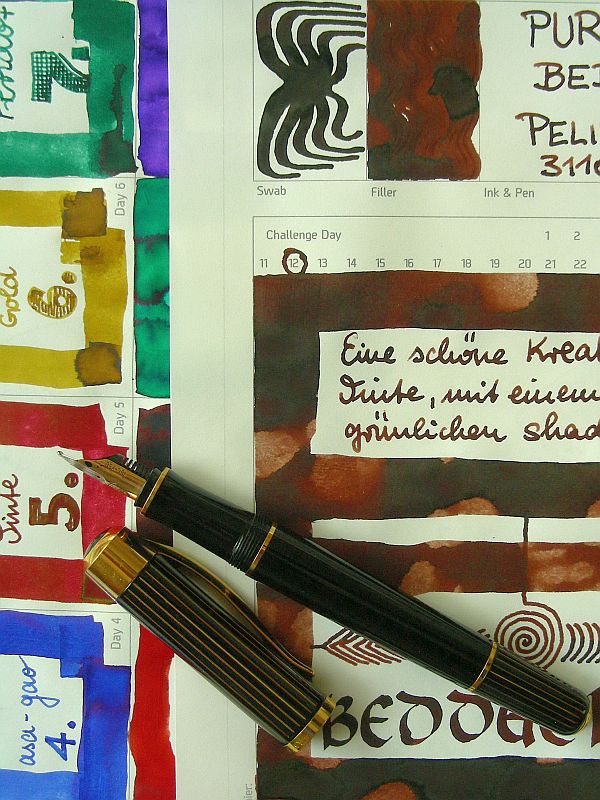 7.
Day 6
Gold
6.
Day 5
Tinte
5.
Day 4
asa-gao
4.
Swab
Filler
Ink & Pen
PUR
BED
PELI
311
Challenge Day
1 2
11 12 13 14 15 16 17 18 19 20 21 22
Eine schöne Kreat
Tinte, mit einem
grünlichen shad
BEDDE